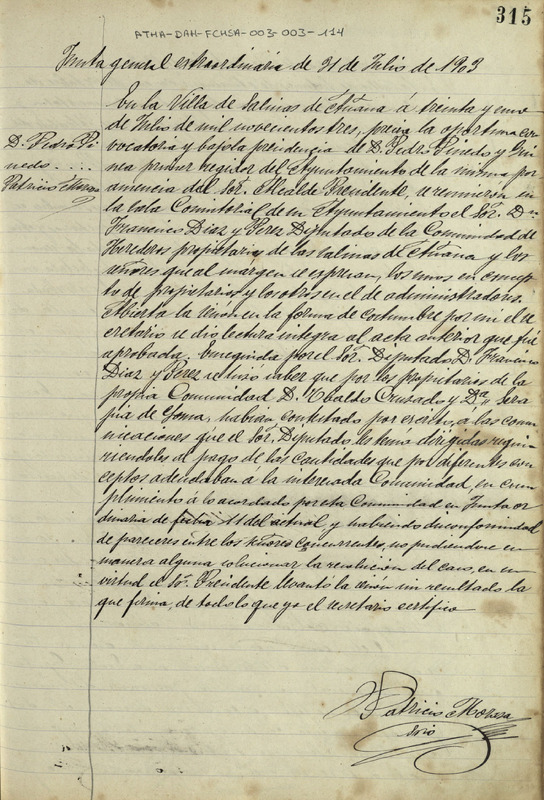 315
ATHA-DAH-FCHSA-003-003-114
Junta general extraordinaria de 31 de Julio de 1903
En la Villa de Salinas de Añana á treinta y uno
de Julio de mil novecientos tres, previa la oportuna con
vocatoria y bajo la presidencia de D. Pedro Pinedo y Gui
nea primer regidor del Ayuntamiento de la misma por
ausencia del Sor. Alcalde Presidente, se reunieron en
la Sala Consistorial de su Ayuntamiento el Sor. Dn
Francisco Diaz y Perez Diputado de la Comunidad de
Herederos propietarios de las Salinas de Añana y los
señores que al margen se espresan, los unos en concep
to de propietarios y los otros en el de administradores.
Abierta la sesion en la forma de costumbre por mi el se
cretario se dio lectura integra al acta anterior que fué
aprobada. Enseguida por el Sor. Diputado D. Francisco
Diaz y Perez se hizo saber que por los propietarios de la
propia Comunidad D. Ubaldo Crusado y Da. Sera
pia de Goma, habian contestado por escrito, á las comu
nicaciones que el Sor. Diputado les tenia dirigidas requi
riendoles al pago de las cantidades que por diferentes con
ceptos adeudaban a la interesada Comunidad, en cum
plimiento á lo acordado por esta Comunidad en Junta or
dinaria de fecha 11 del actual, y habiendo disconformidad
de pareceres entre los señores concurrentes, no pudiendose en
manera alguna solucionar la resolucion del caso, en su
virtud el Sor. Presidente levantó la sesion sin resultado la
que firma, de todo lo que yo el secretario certifico
D. Pedro Pi
nedo. . . .
Patricio Moraza
Patricio Moraza
Srio